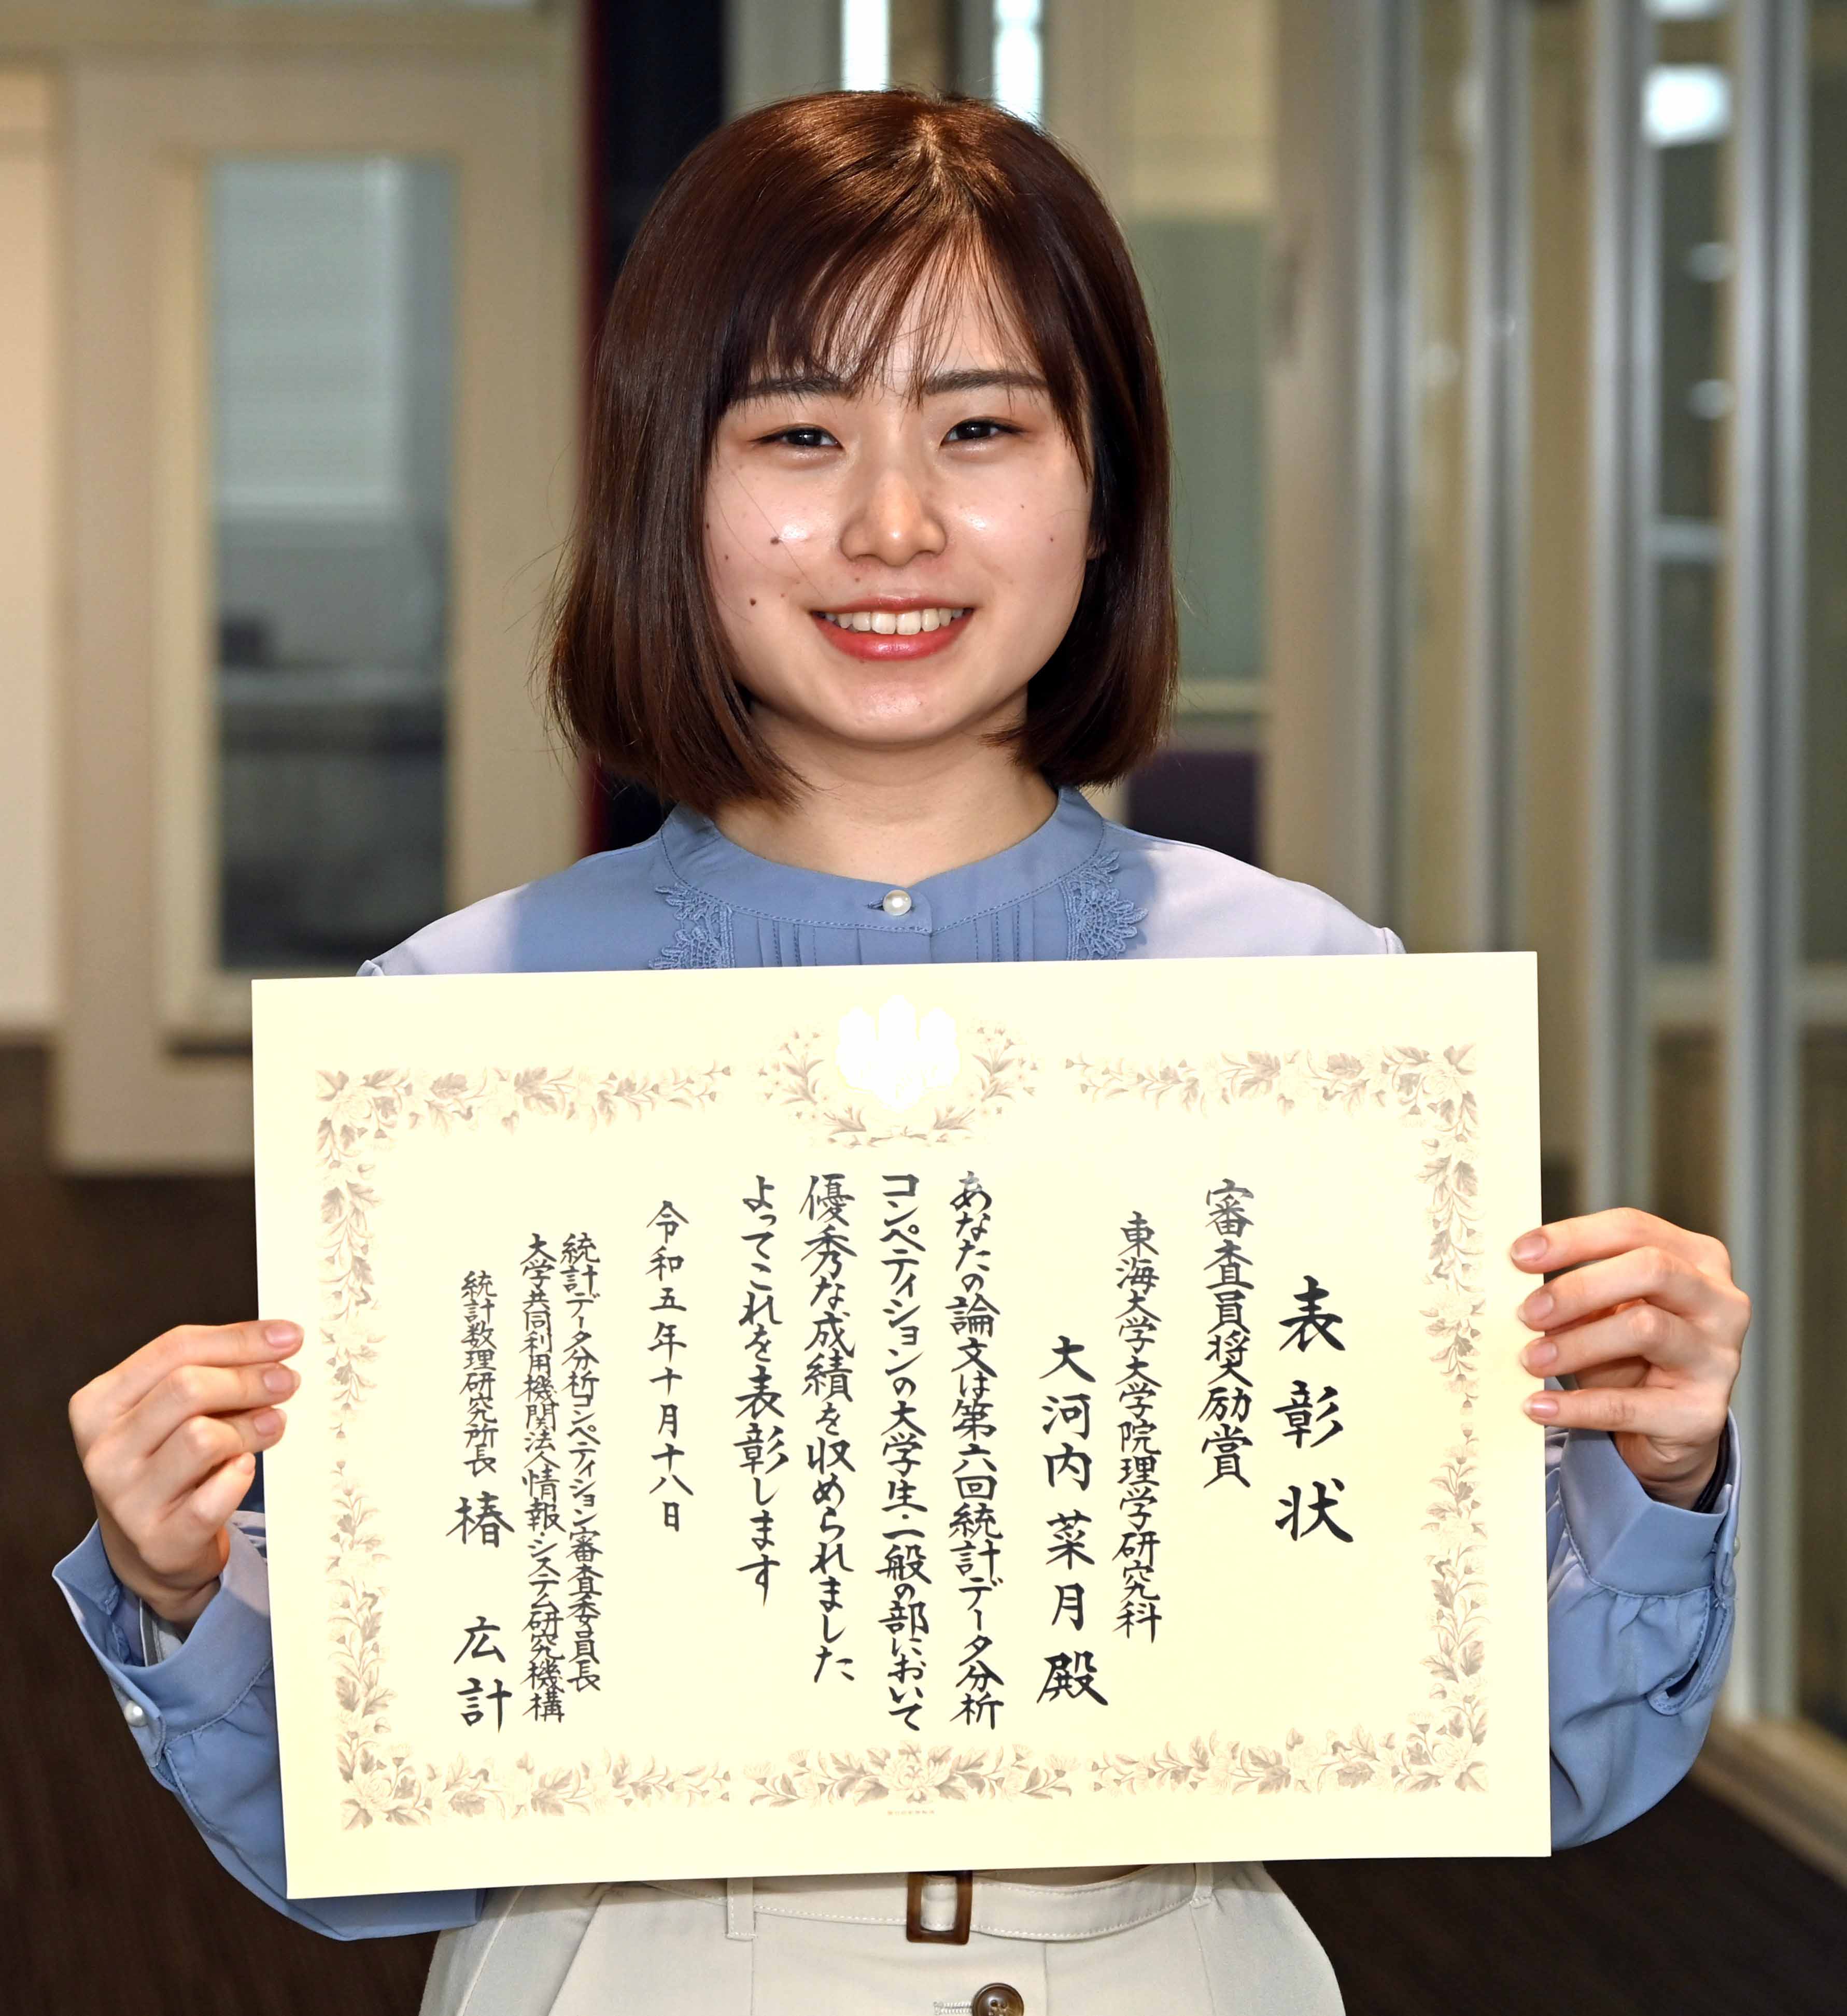 表彰状
審査員奨励賞
東海大学大学院理学研究科
大河内菜月殿
あなたの論文は第六回統計データ分析
コンペティションの大学生・一般の部において
優秀な成績を収められました
よってこれを表彰します
令和五年十月十八日
統計データ分析コンペティション審査委員長
大学共同利用機関法人情報・システム研究機構
統計数理研究所長 椿 広計